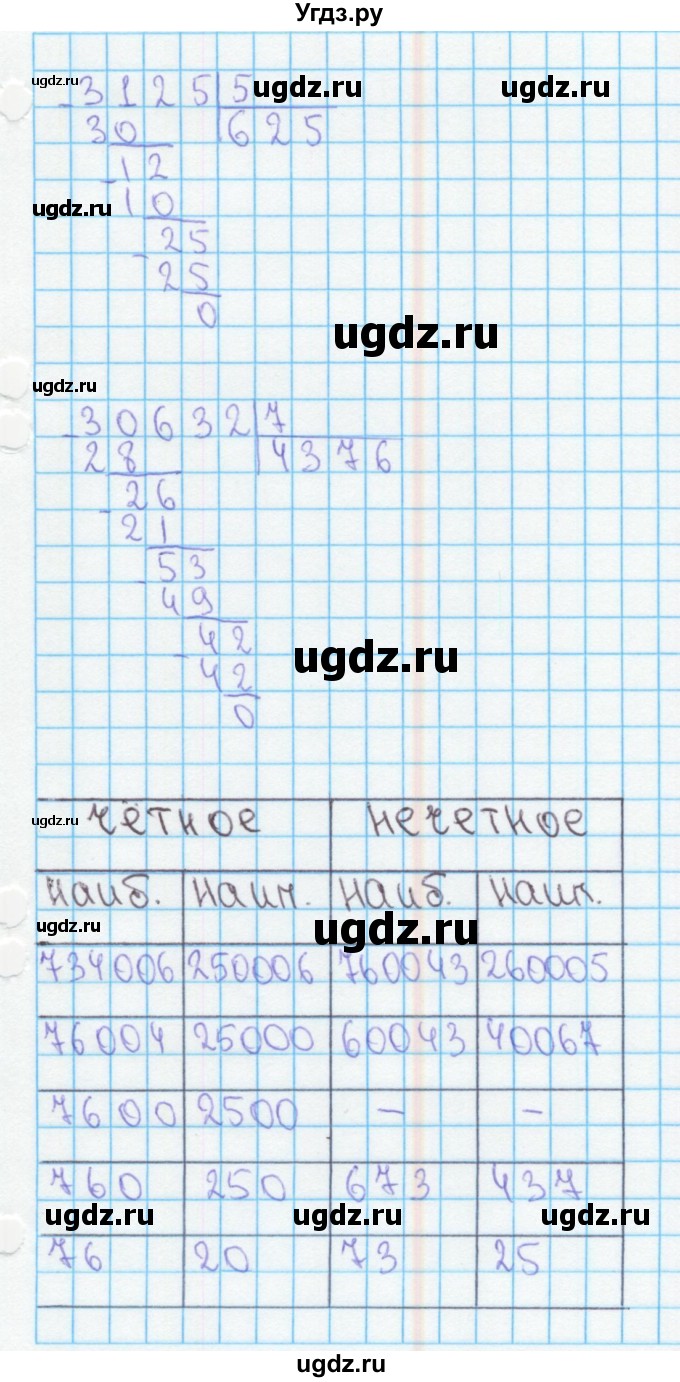 Угдз.ру
ugdz.ru
-3125|5 ugdz.ru ugdz.ru
30 |625
-12
ugdz.ru 10
-25
25
0
ugdz.ru
ugdz.ru
-30632|7
28 |4376
-26
21
-53
49
-42
ugdz.ru
42
0
ugdz.ru четное нечетное
наиб. наим. наиб. наим.
ugdz.ru ugdz.ru
734006 250006 760043 260005
76004 25000 60043 40067
7600 2500 - -
760 250 673 437
ugdz.ru ugdz.ru ugdz.ru
76 20 73 25
ugdz.ru